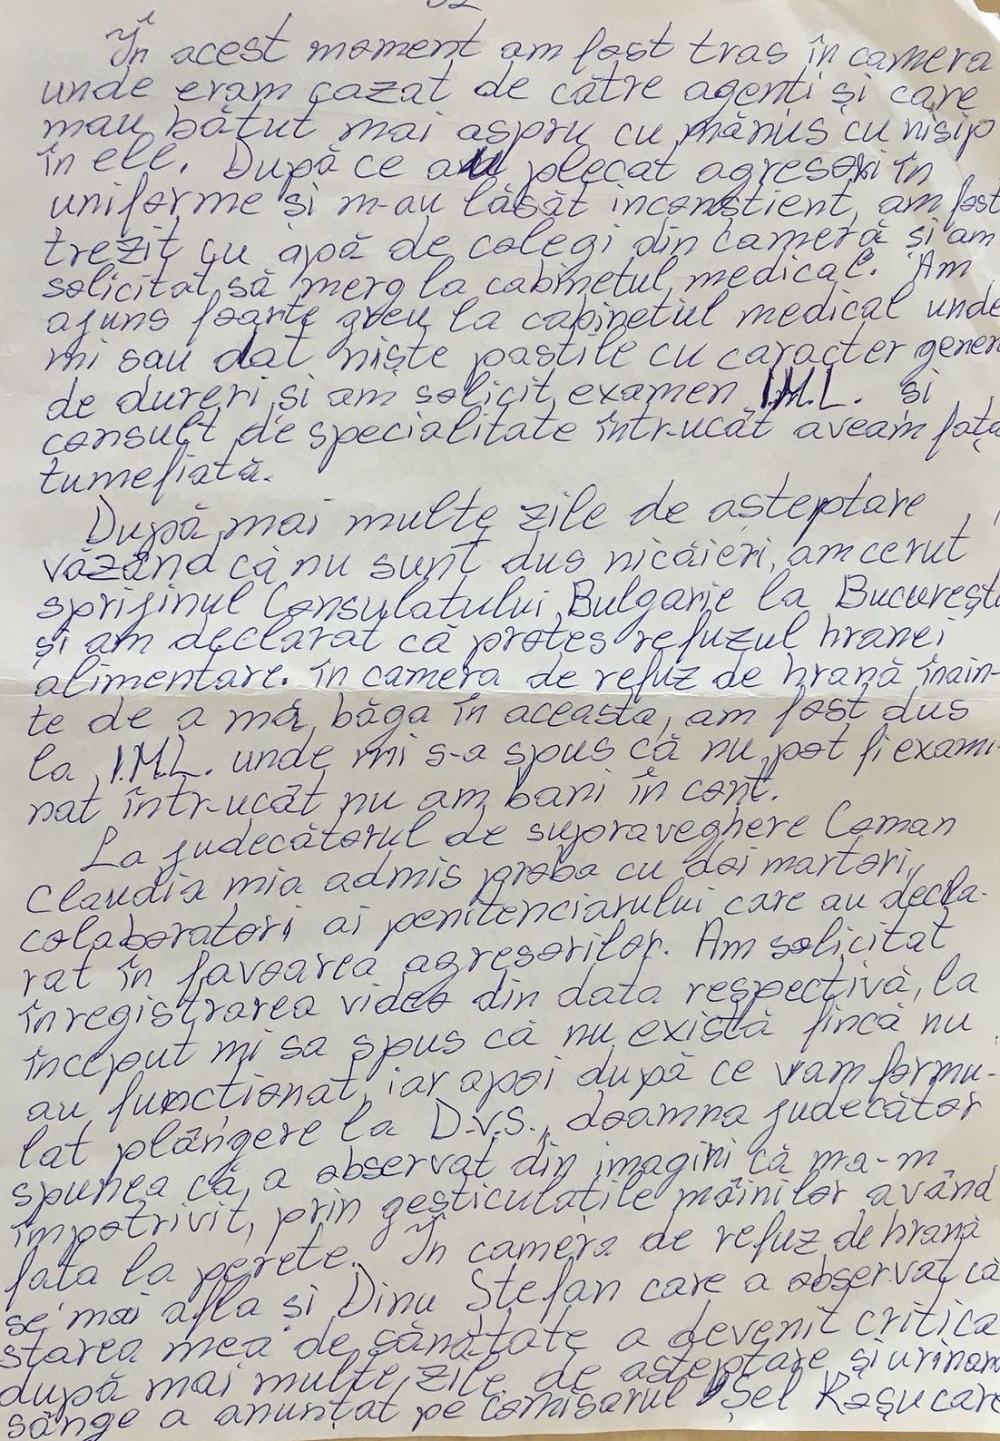 În acest moment am fost tras în camera
unde eram cazat de către agenți și care
mau bătut mai aspru cu mănus cu nisip
în ele. După ce au plecat agresori în
uniforme și m-au lăsăt inconștient, am fost
trezit cu apă de colegi din cameră și am
solicitat să merg la cabinetul medical. Am
ajuns foarte greu la cabinetul medical unde
mi sau dat niște pastile cu caracter gener
de dureri și am solicit examen I.M.L. și
consult de specialitate într-ucât aveam fața
tumefiată.
După mai multe zile de așteptare
văzând că nu sunt dus nicăieri, am cerut
sprijinul Consulatului Bulgarie la București
și am declarat că protes refuzul hranei
alimentare. în camera de refuz de hrană înain-
te de a mă băga în aceasta, am fost dus
la I.M.L. unde mi s-a spus că nu pot fi exami-
nat într-ucât nu am bani în cont.
La judecătorul de supraveghere Coman
Claudia mia admis proba cu doi martori,
colaboratori ai penitenciarului care au decla-
rat în favoarea agresorilor. Am solicitat
înregistrarea video din data respectivă, la
început mi sa spus că nu există fincă nu
au funcționat, iar apoi după ce vam formu-
lat plângere la D.V.S., doamna judecător
spunea că a observat din imagini că ma-m
împotrivit, prin gesticulațile mâinilor având
fața la perete. În camera de refuz de hrană
se mai afla și Dinu Ștefan care a observat că
starea mea de sănătate a devenit critică
după mai multe zile de așteptare și urinam
sânge a anunțat pe comisarul Șef Roșu care